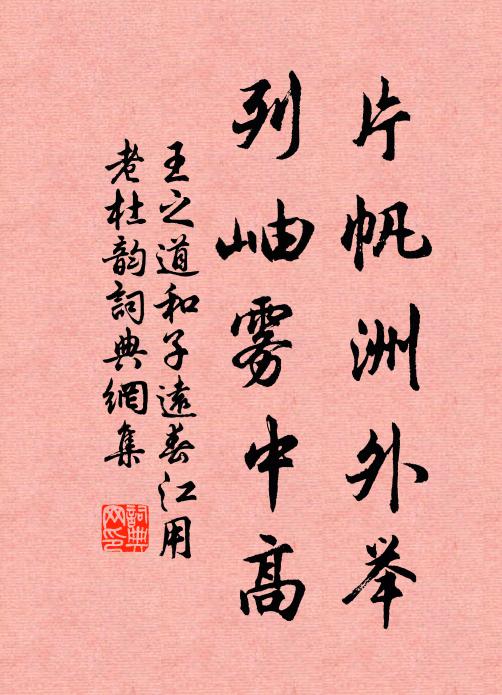 片帆洲外举
列岫雾中高
王之道和子遠春江用
老杜韵詞典網集
詞典网印